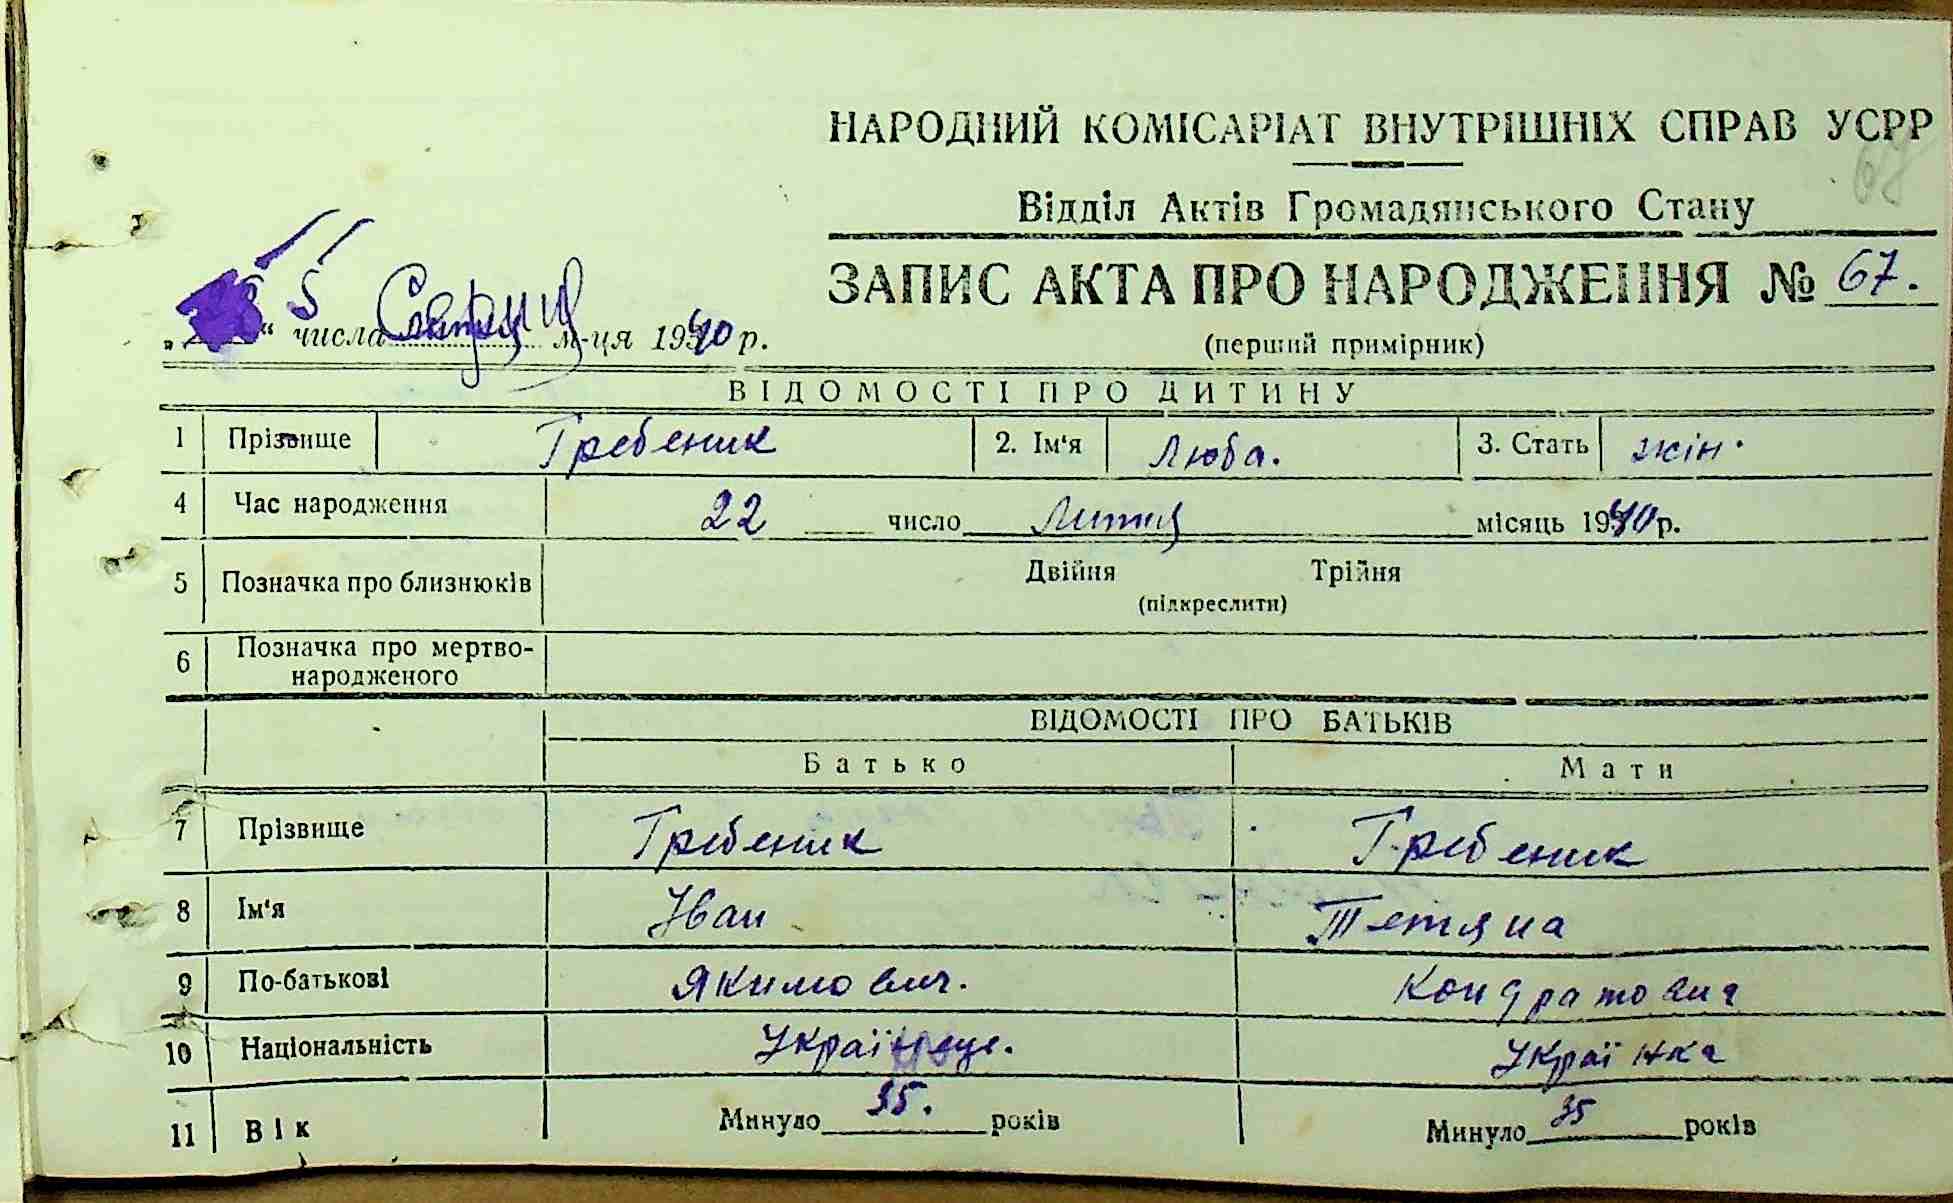 НАРОДНИЙ КОМІСАРІАТ ВНУТРІШНІХ СПРАВ УСРР
68
Відділ Актів Громадянського Стану
ЗАПИС АКТА ПРО НАРОДЖЕННЯ № 67.
(перший примірник)
„ “ 5 числа Серпня м-ця 1940 р.
ВІДОМОСТІ ПРО ДИТИНУ
1 Прізвище Гребеник 2. Ім'я Люба. 3. Стать жін.
4 Час народження 22 число Липня місяць 1940 р.
5 Позначка про близнюків Двійня Трійня
(підкреслити)
6 Позначка про мертво-
народженого
ВІДОМОСТІ ПРО БАТЬКІВ
Батько Мати
7 Прізвище Гребеник Гребеник
8 Ім'я Іван Тетяна
9 По-батькові Якимович. Кондратовна
10 Національність Українець. Українка
11 Вік Минуло 35. років Минуло 35 років